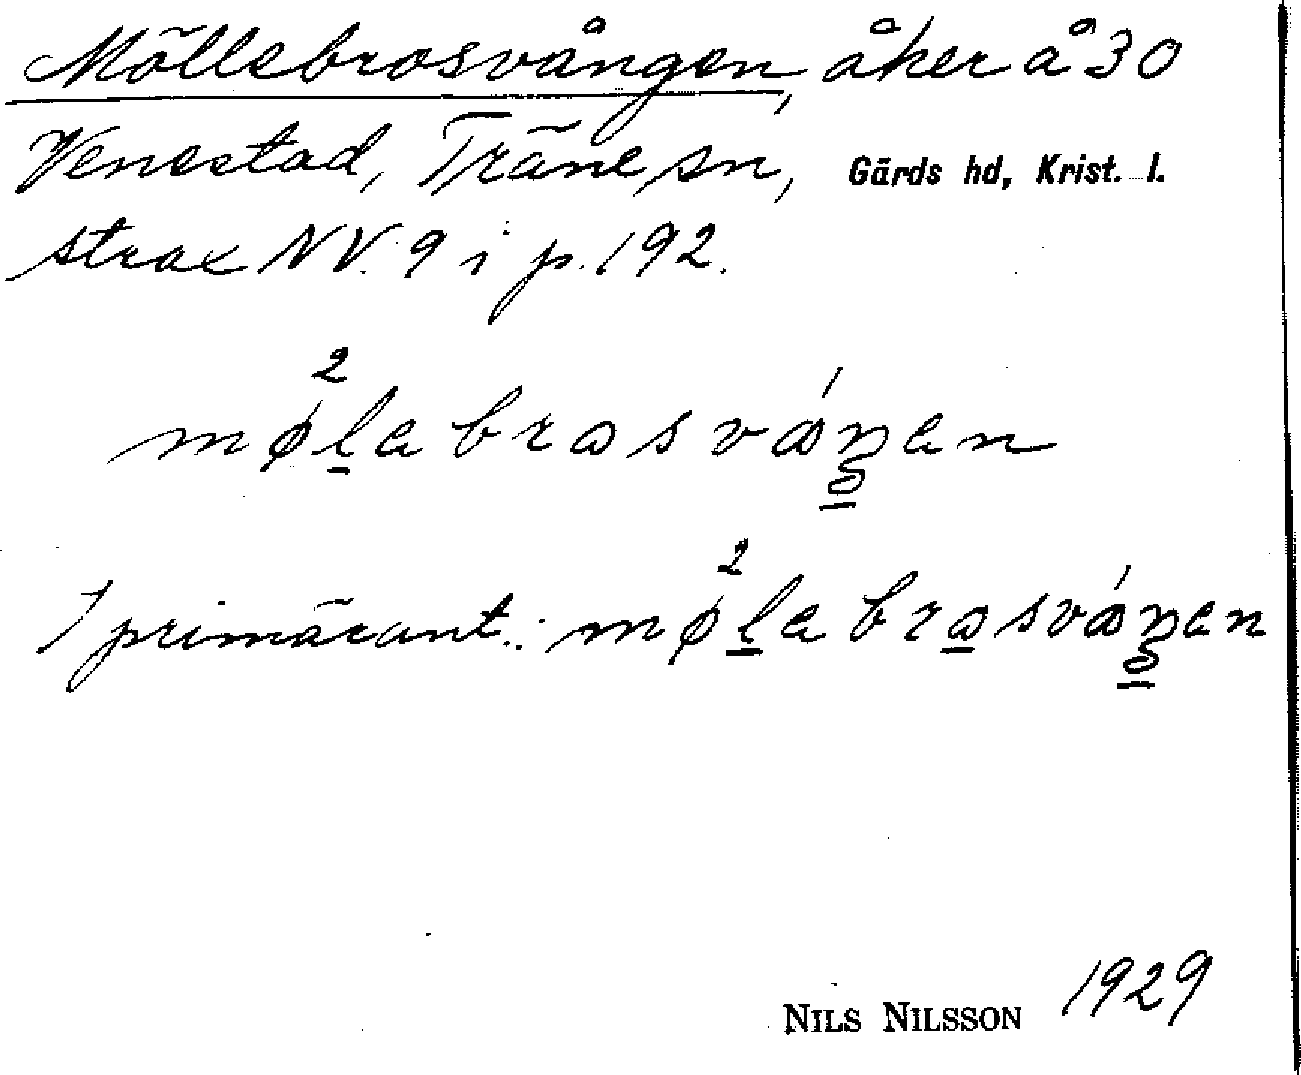 Möllebrosvången, åker å 30
Venestad, Träne sn, Gärds hd, Krist. l.
strax NV. 9 i p. 192.
mø²l̲abrɷsvɷ́ŋ̲ən
I primäruut.: mø²l̲abrɷ̲svɷ́ŋ̲ən
NILS NILSSON 1929